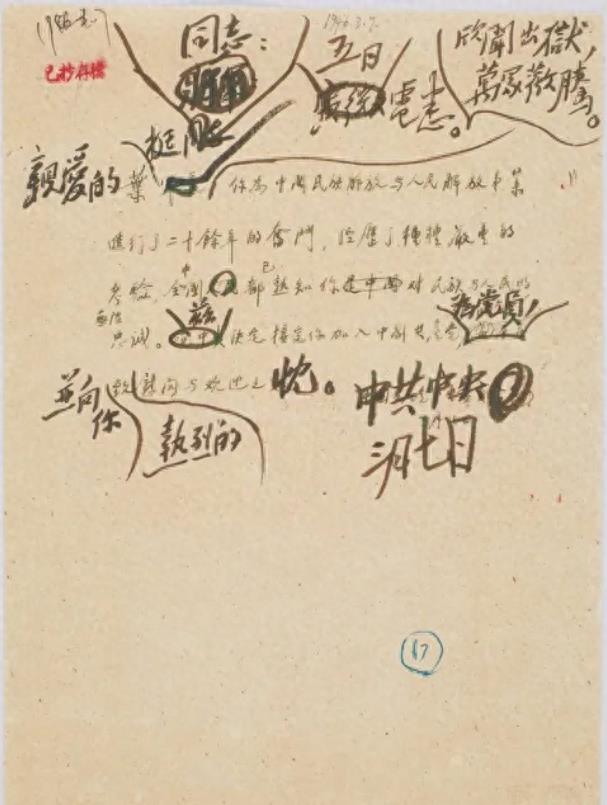 (1946.3.7)
1946.3.7.
已抄存檔
同志：
五日
電悉。
欣聞出獄，
萬眾歡騰。
挺同志
親愛的葉 你為中國民族解放与人民解放事業
進行了二十餘年的奮鬥，經歷了種種嚴重的
考驗，全中國 都已熟知你是中國對民族与人民的
無限忠誠。茲 決定接受你加入中國共產黨，為黨員，
並向你致 慰问与欢迎之忱。
熱烈的
中共中央
三月七日
17